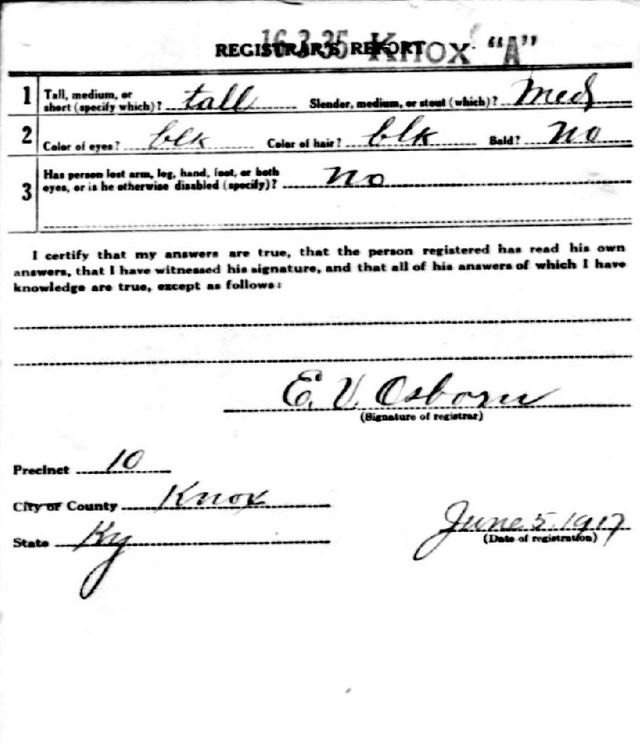 16-3-35 Knox "A"
REGISTRAR'S REPORT
1 Tall, medium, or short (specify which)? tall Slender, medium, or stout (which)? Med
2 Color of eyes? blk Color of hair? blk Bald? no
3 Has person lost arm, leg, hand, foot, or both
eyes, or is he otherwise disabled (specify)? no
I certify that my answers are true, that the person registered has read his own
answers, that I have witnessed his signature, and that all of his answers of which I have
knowledge are true, except as follows:
E. V. Osborn
(Signature of registrar)
Precinct 10
City or County Knox
State Ky
June 5. 1917
(Date of registration)